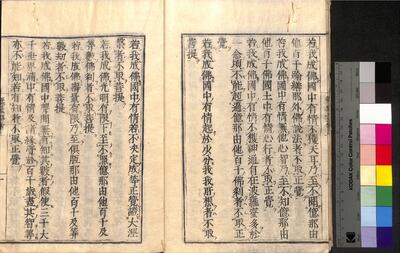 若我成佛國中有情不獲天耳乃至不聞億那由
他百千踰繕那外佛說法者不取正覺
若我成佛國中有情無他心智乃至不知億那由
他百千佛國土中有情心行者不取正覺
若我成佛國中有情不獲神通自在波羅蜜多於
一念頃不能超過億那由他百千佛剎者不取正
覺
若我成佛國中有情起於少分我我所想者不取
菩提
若我成佛國中有情若不決定成等正覺證大涅
槃者不取菩提
若我成佛光明有限下至不照億那由他百千及
算數佛剎者不取菩提
若我成佛壽量有限乃至俱胝那由他百千及算
數劫者不取菩提
若我成佛國中聲聞無有知其數者假使三千大
千世界滿中有情及諸緣覺於百千歲盡其智算
亦不能知若有知者不取正覺
KODAK Color Control Patches